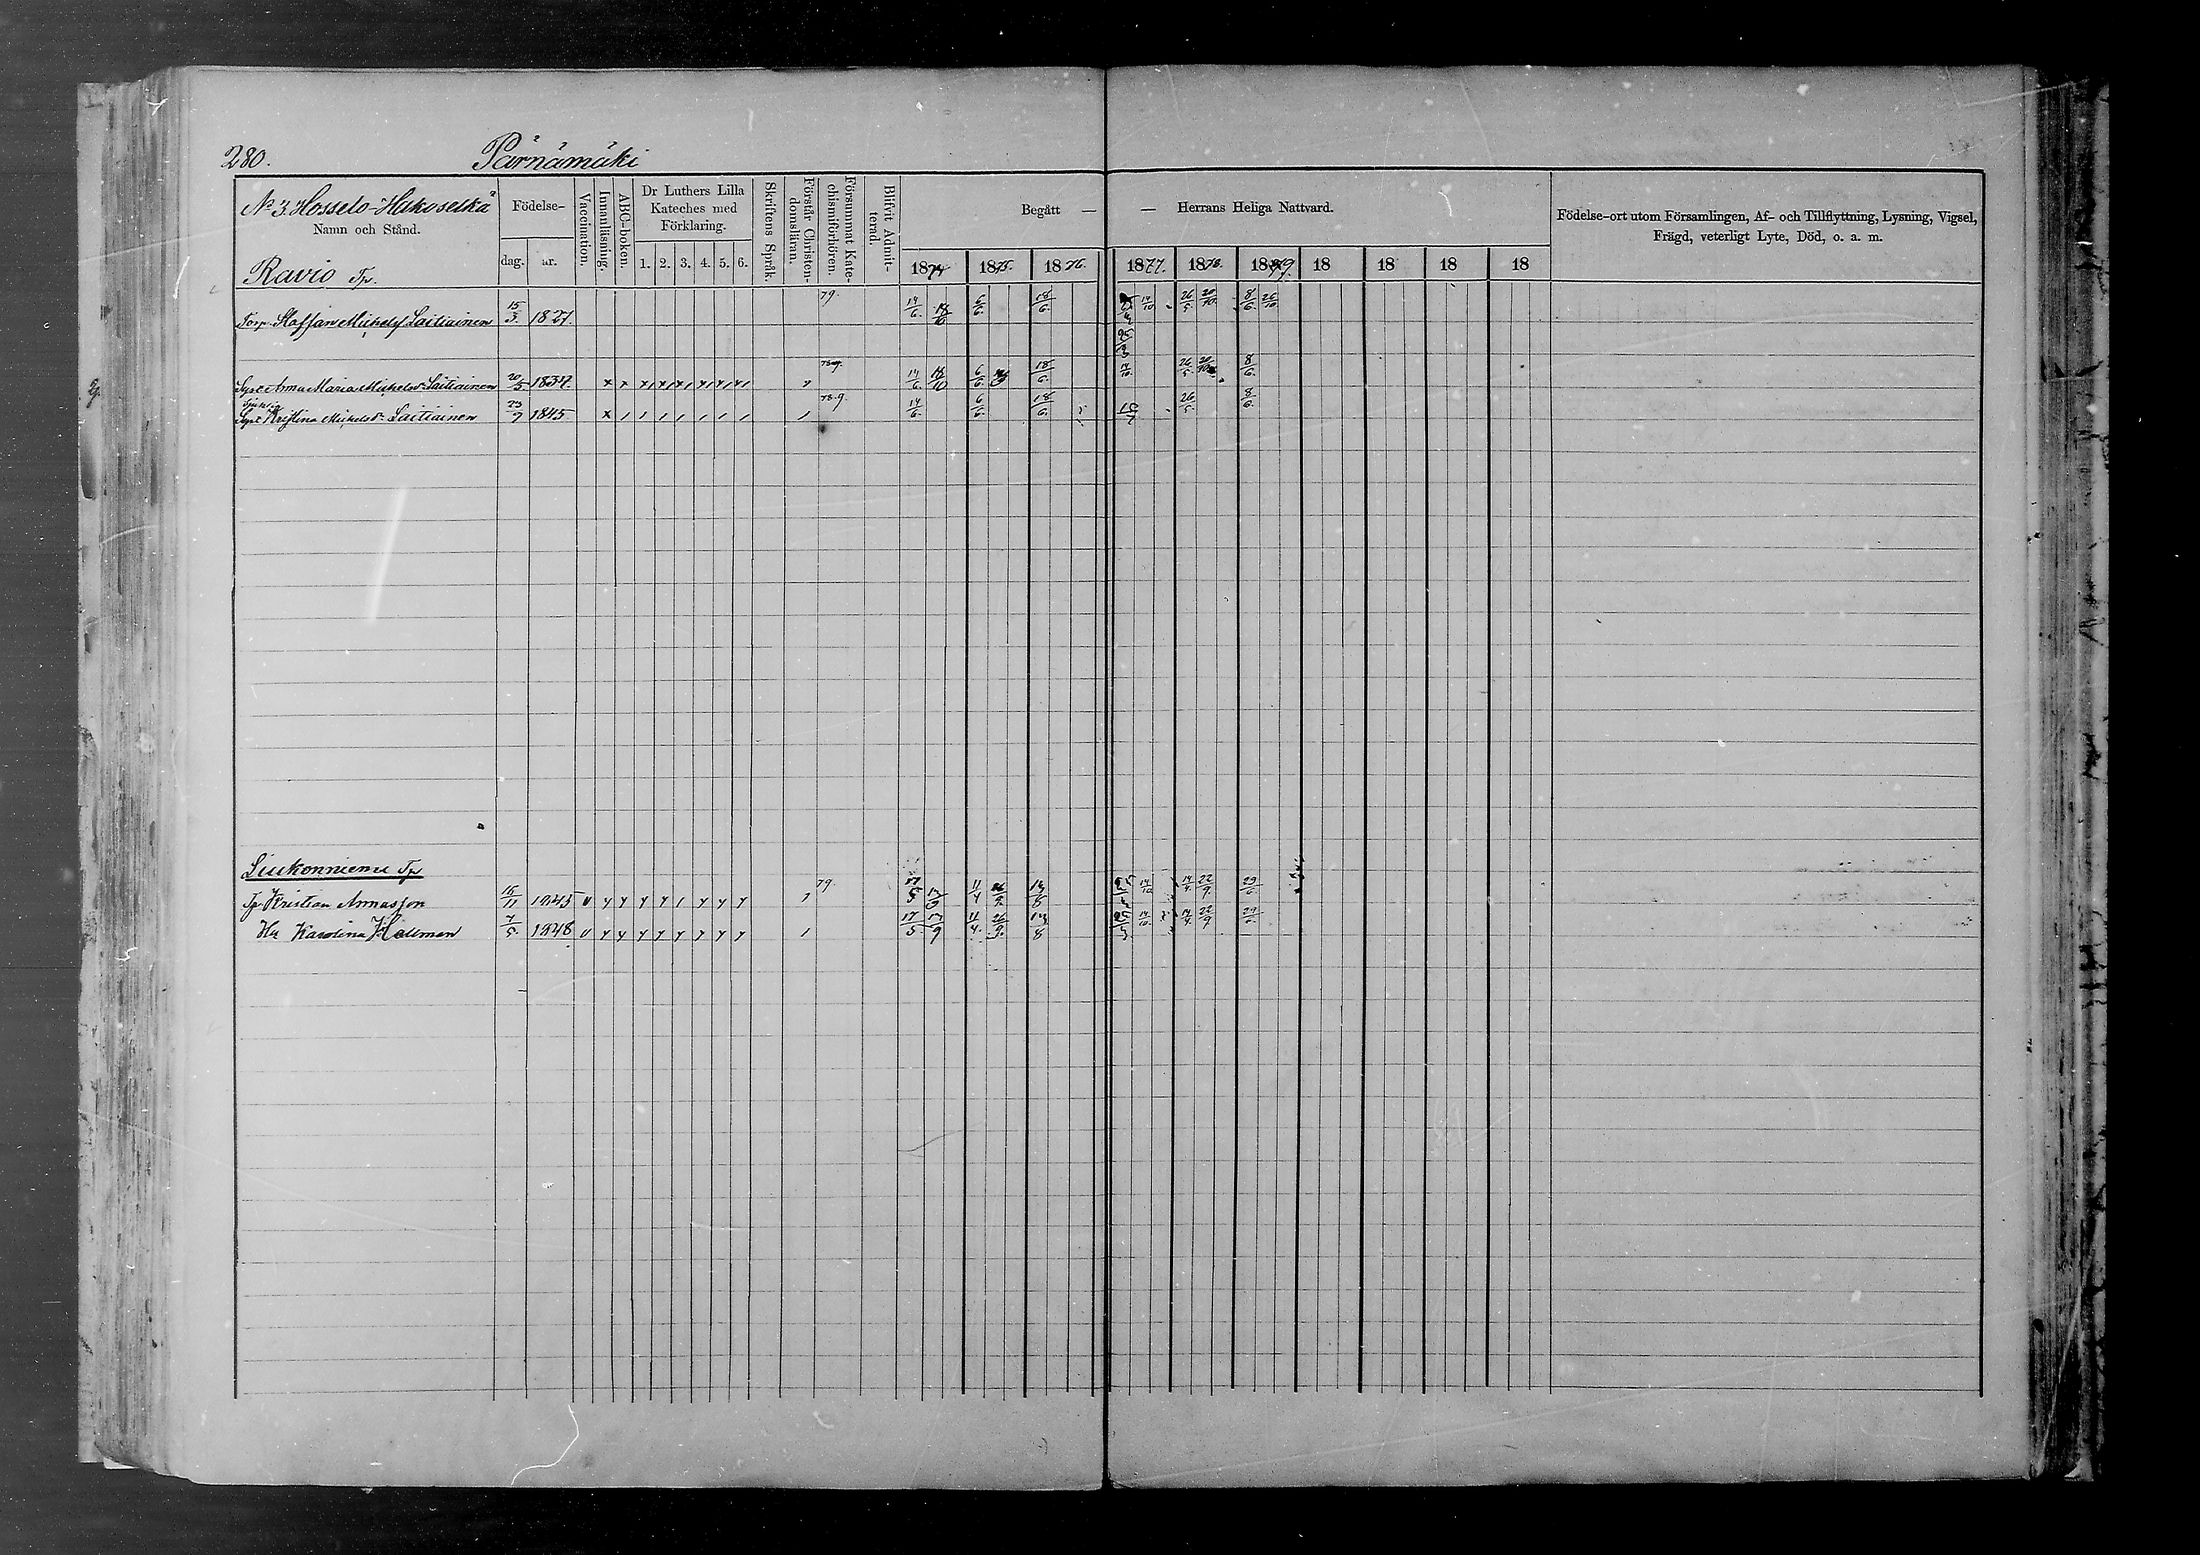 280. Pärnämäki
No 3. Hosselo "Hakoselkä"
Namn och Stånd.
Ravio Tp.
Födelse-
dag. år.
Vaccination.
Innanläsning.
ABC-boken.
Dr Luthers Lilla
Kateches med
Förklaring.
1. 2. 3. 4. 5. 6.
Skriftens Språk.
Förstår Christen-
domsläran.
Försummat Kate-
chismiförhören.
Blifvit Admit-
terad.
Begått — — Herrans Heliga Nattvard.
1874 1875. 1876. 1877. 1878. 1879. 18 18 18 18
Födelse-ort utom Församlingen, Af- och Tillflyttning, Lysning, Vigsel,
Frägd, veterligt Lyte, Död, o. a. m.
Torp. Staffan Michelsf Laitiainen 15/3 1821. 79. 14/6 18/6 6/6 18/6 14/10 26/5 20/10 8/6 26/10
Syst. Anna Maria Michelsdr Laitiainen 20/5 1834. 14/6 18/10 6/6 18/6 14/10 26/5 20/10 8/6
Syst. Kristina Michelsdr Laitiainen 23/7 1845 78.9. 14/6 6/6 18/6 26/5 8/6
Liukonniemi Tp
Tp Kristian Annasson 15/11 1845 79. 17/5 11/4 14/10 14/4 22/9 29/6
Hu Karolina Hällman 7/5 1848 17/5 17/9 11/4 26/9 13/8 25/5 14/10 14/4 22/9 29/6